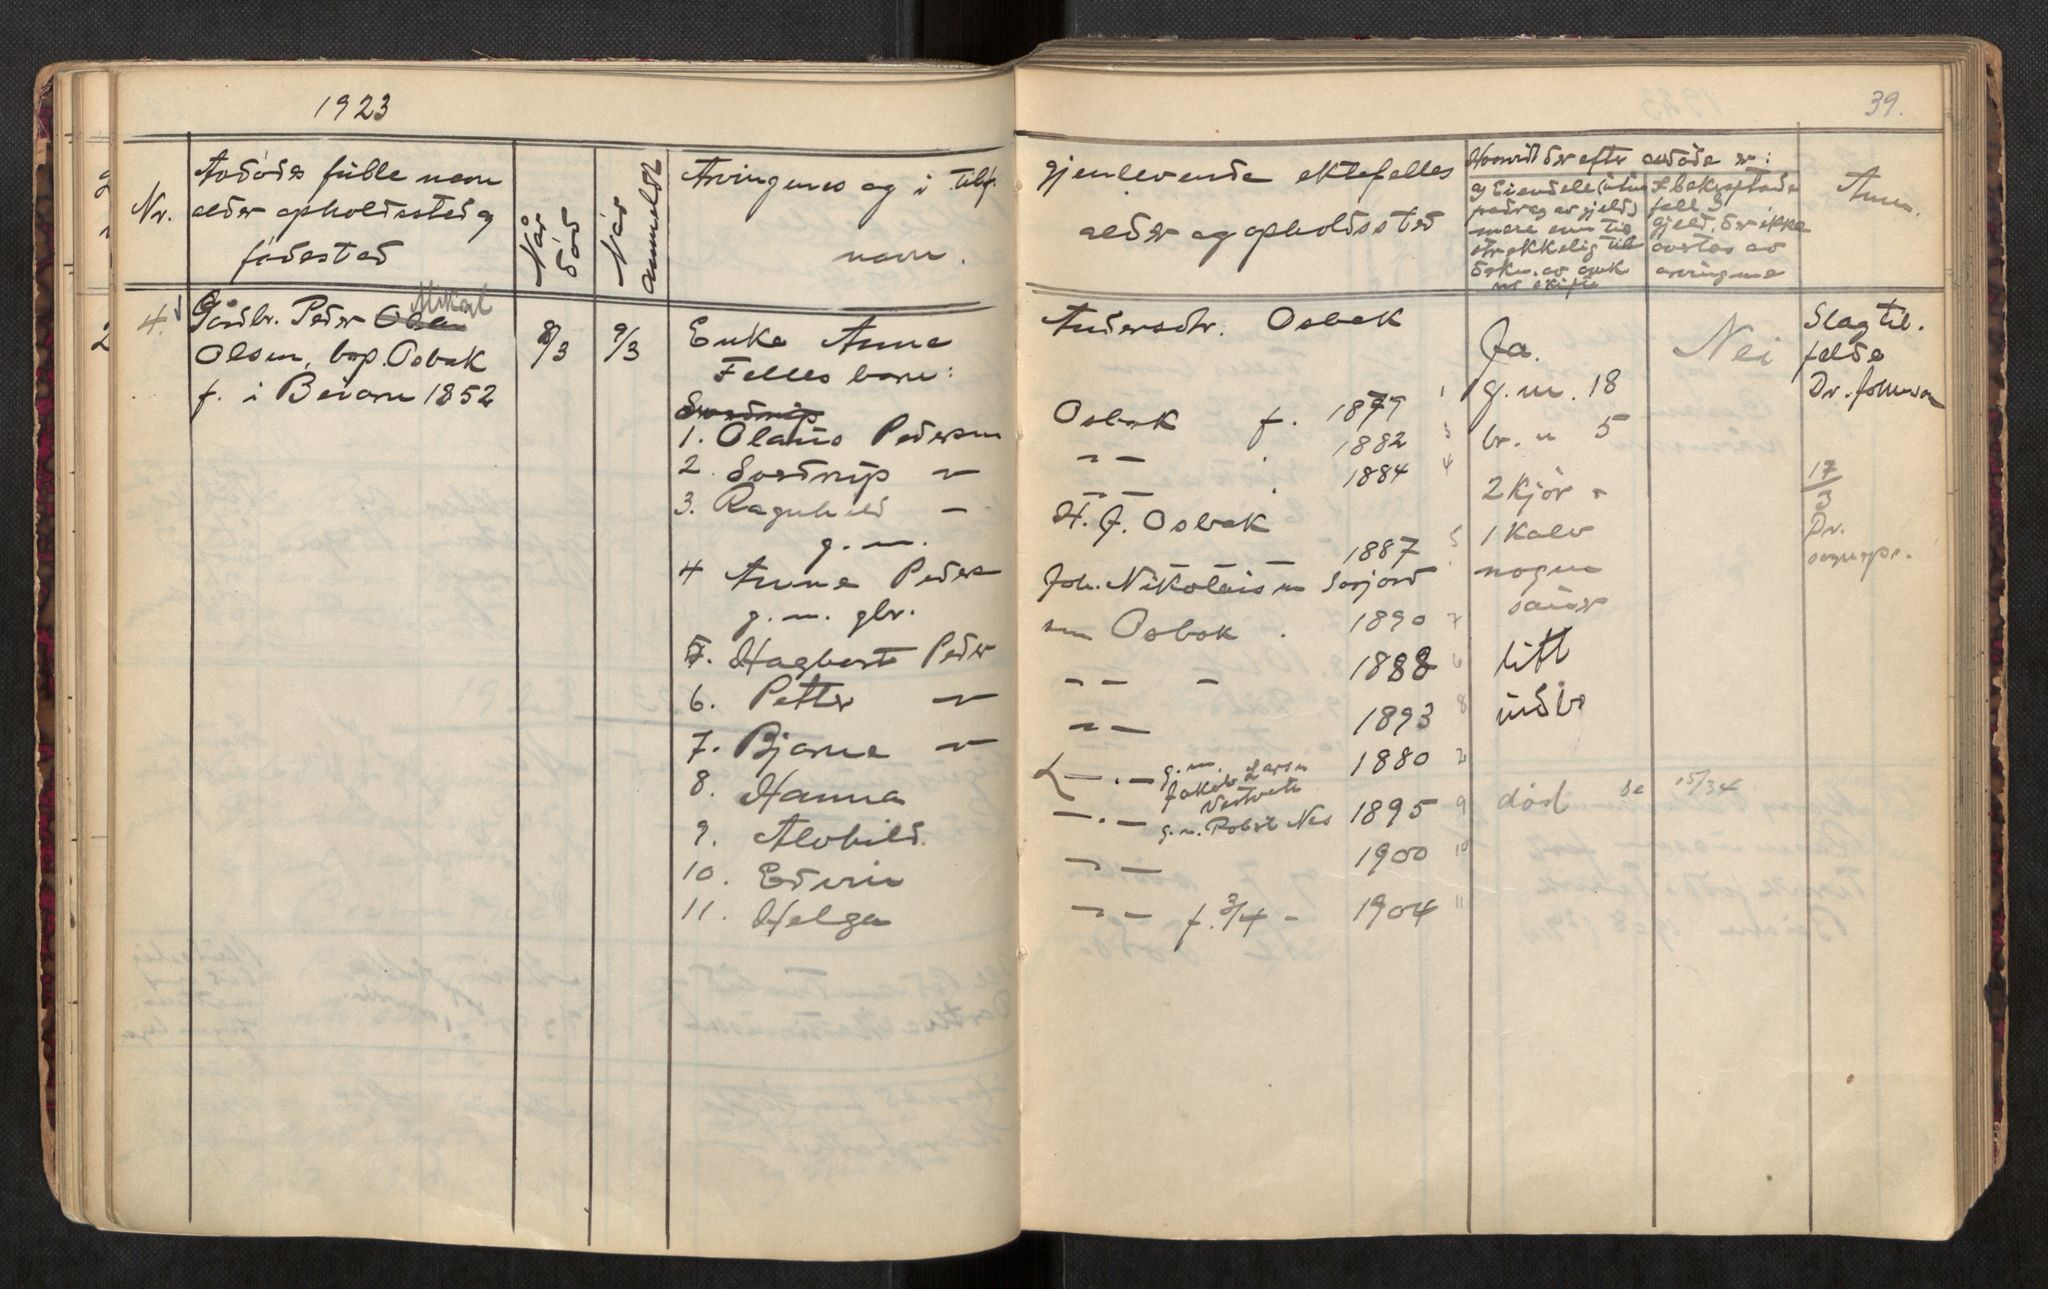 1923
39.
Nr.
Avdødes fulle navn
alder opholdssted og
fødested
Når
død
Når
anmeldt
Arvingenes og i tilf.
navn.
gjenlevende ektefelles
alder og opholdssted
Hvorvidt der efter avdøde er:
mere enn til
strekkelig til
gjeld, der ikke
avtas av
arvingene
Anm.
2
4.
Gårdbr. Peder Olsen Mikal
Olsen, bop. Osbak
f. i Beiarn 1852
8/3
9/3
Enke Anne
Felles barn:
Sverdrup
1. Olaus Pedersen
2. Sverdrup "
3. Ragnhild -
g. m.
4 Anne Peders
g. m. gbr.
5. Hagbart Peder
6. Petter "
7. Bjarne "
8. Hanna
9. Alvhild
10. Edvin
11. Helga
Andersdtr. Osbak
Osbak f. 1877 1
- - . 1882 3
- - . 1884 4
H. J. Osbak
1887 5
Joh. Nikolaisen Sørfjord
sen Osbak . 1890 7
- - - 1888 6
- - 1893 8
- . - g. m. Jakob Larsen 1880 2
- . - g. m. Robert Nes 1895 9
- - 1900 10
- - f. 3/4 - 1904 11
Ja.
g. m. 18
br. " 5
2 kjør
1 kalv
nogen
sauer
litt
indbo
død 15/34
Nei
Slagtil.
felde
Dr. Johnson
17
3
Dr.